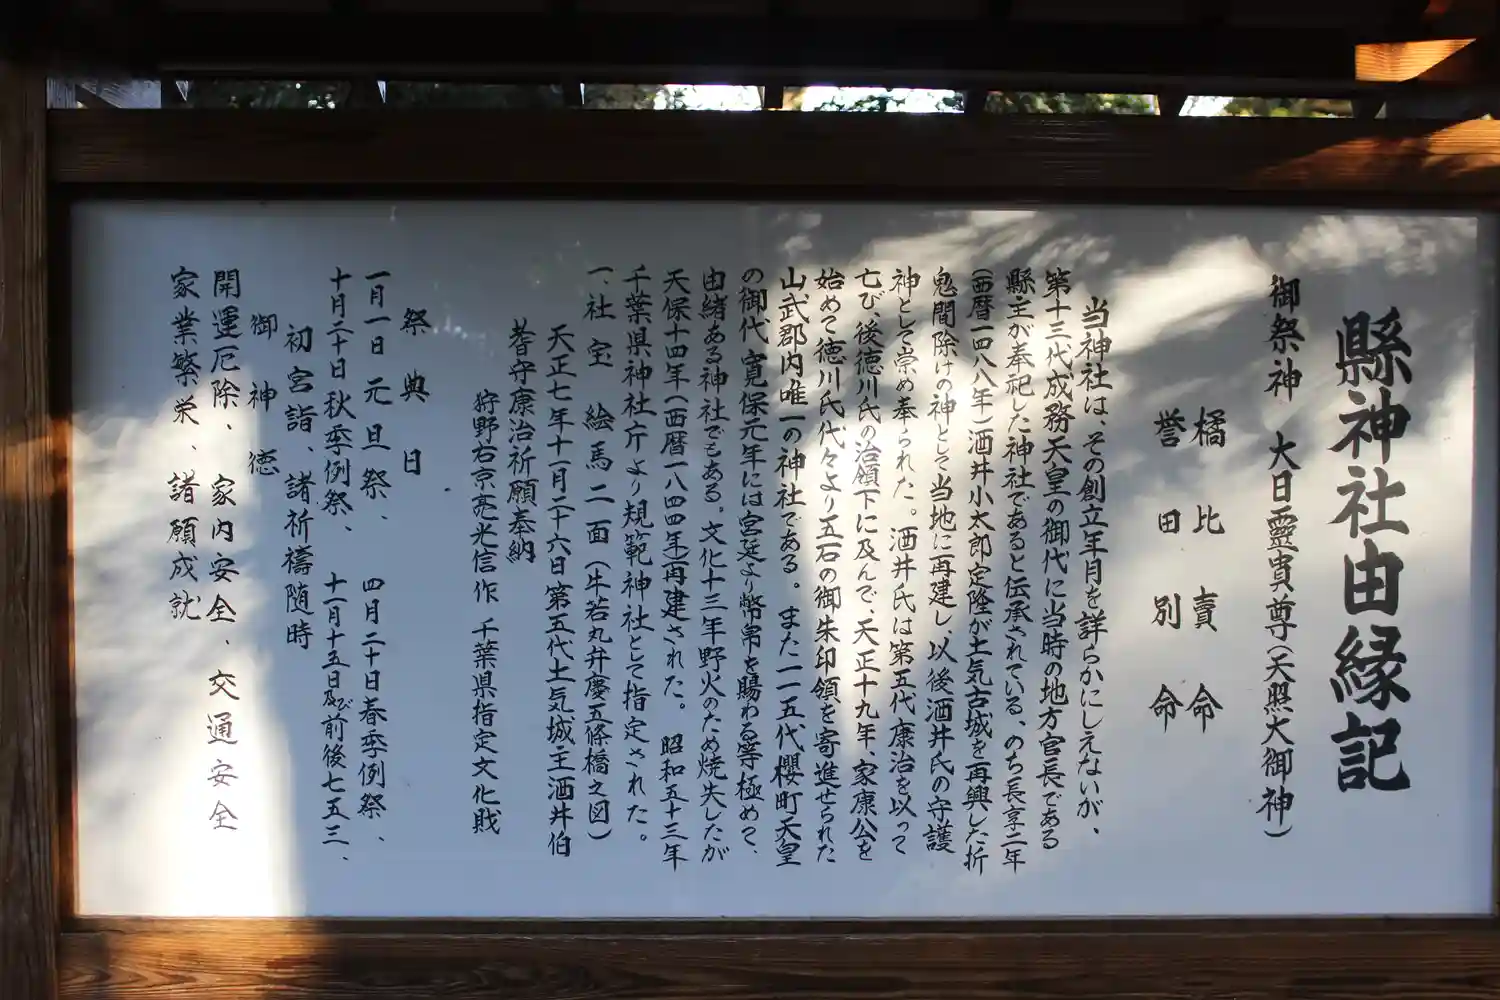 縣神社由縁記
御祭神 大日靈貴尊(天照大御神)
橘比賣命
誉田別命
当神社は、その創立年月を詳らかにしえないが、
第十三代成務天皇の御代に当時の地方官長である
縣主が奉祀した神社であると伝承されている、のち長享二年
(西暦一四八八年)酒井小太郎定隆が土気古城を再興した折
鬼門除けの神として当地に再建し、以後酒井氏の守護
神として崇め奉られた。酒井氏は第五代康治を以って
七び、後徳川氏の治領下に及んで、天正十九年、家康公を
始めて徳川氏代々より五石の御朱印領を寄進せられた
山武郡内唯一の神社である。また一一五代櫻町天皇
の御代寛保元年には宮廷より幣帛を賜わる等極めて、
由緒ある神社でもある。文化十三年野火のため焼失したが
天保十四年(西暦一八四四年)再建された。昭和五十三年
千葉県神社庁より規範神社として指定された。
一、社宝 絵馬二面(牛若丸弁慶五條橋之図)
天正七年十一月二十六日第五代土気城主酒井伯
耆守康治祈願奉納
狩野右京亮光信作 千葉県指定文化財
祭典日
一月一日元旦祭、 四月二十日春季例祭、
十月二十日秋季例祭、 十一月十五日及び前後七五三、
初宮詣、諸祈禱随時
御神徳
開運厄除、家内安全、交通安全
家業繁栄、諸願成就